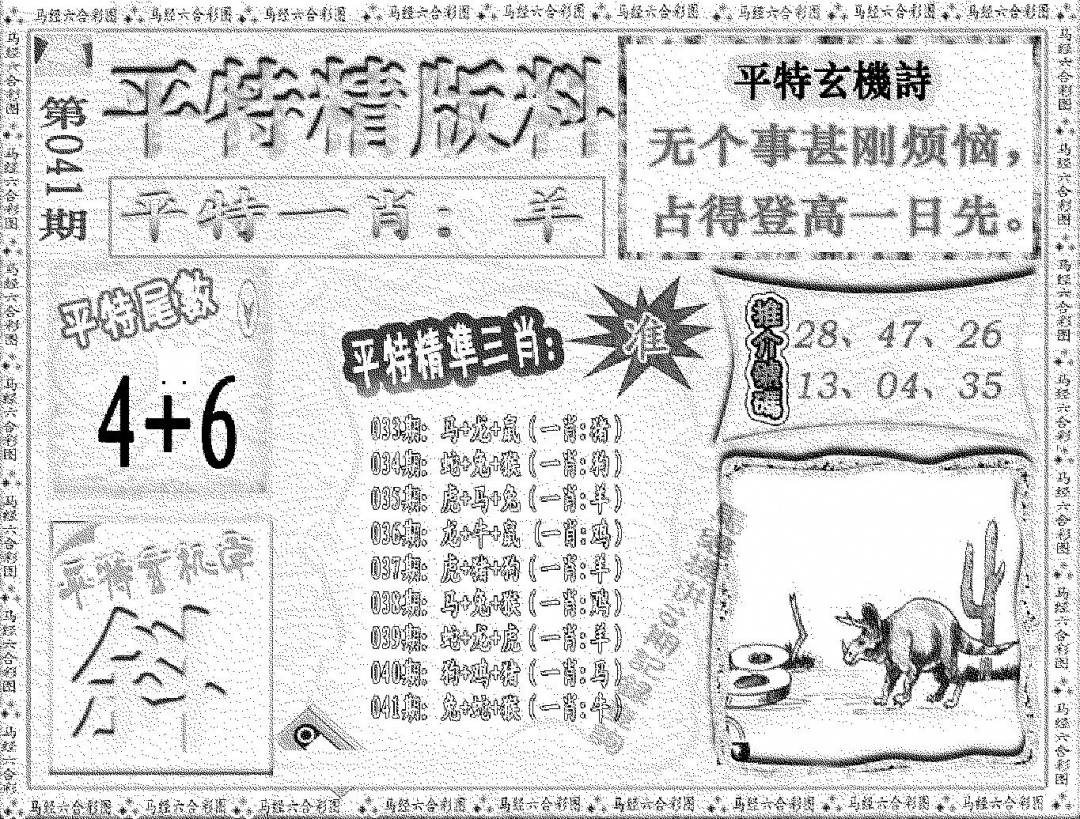 马经六合彩图 马经六合彩图 马经六合彩图 马经六合彩图 马经六合彩图 马经六合彩图 马经六合彩图 马经六合彩图 马经六合彩图
第041期
平特精版料
平特一肖: 羊
平特玄機詩
无个事甚刚烦恼，
占得登高一日先。
平特尾数
4+6
平特精準三肖:
准
推介號碼
28、47、26
13、04、35
033期: 马+龙+鼠 (一肖:猪)
034期: 蛇+兔+猴 (一肖:狗)
035期: 虎+马+兔 (一肖:羊)
036期: 龙+牛+鼠 (一肖:鸡)
037期: 虎+猪+狗 (一肖:羊)
038期: 马+兔+猴 (一肖:鸡)
039期: 蛇+龙+虎 (一肖:羊)
040期: 狗+鸡+猪 (一肖:马)
041期: 兔+蛇+猴 (一肖:牛)
平特玄机字
斜
马经六合彩图 马经六合彩图 马经六合彩图 马经六合彩图 马经六合彩图 马经六合彩图 马经六合彩图 马经六合彩图 马经六合彩图